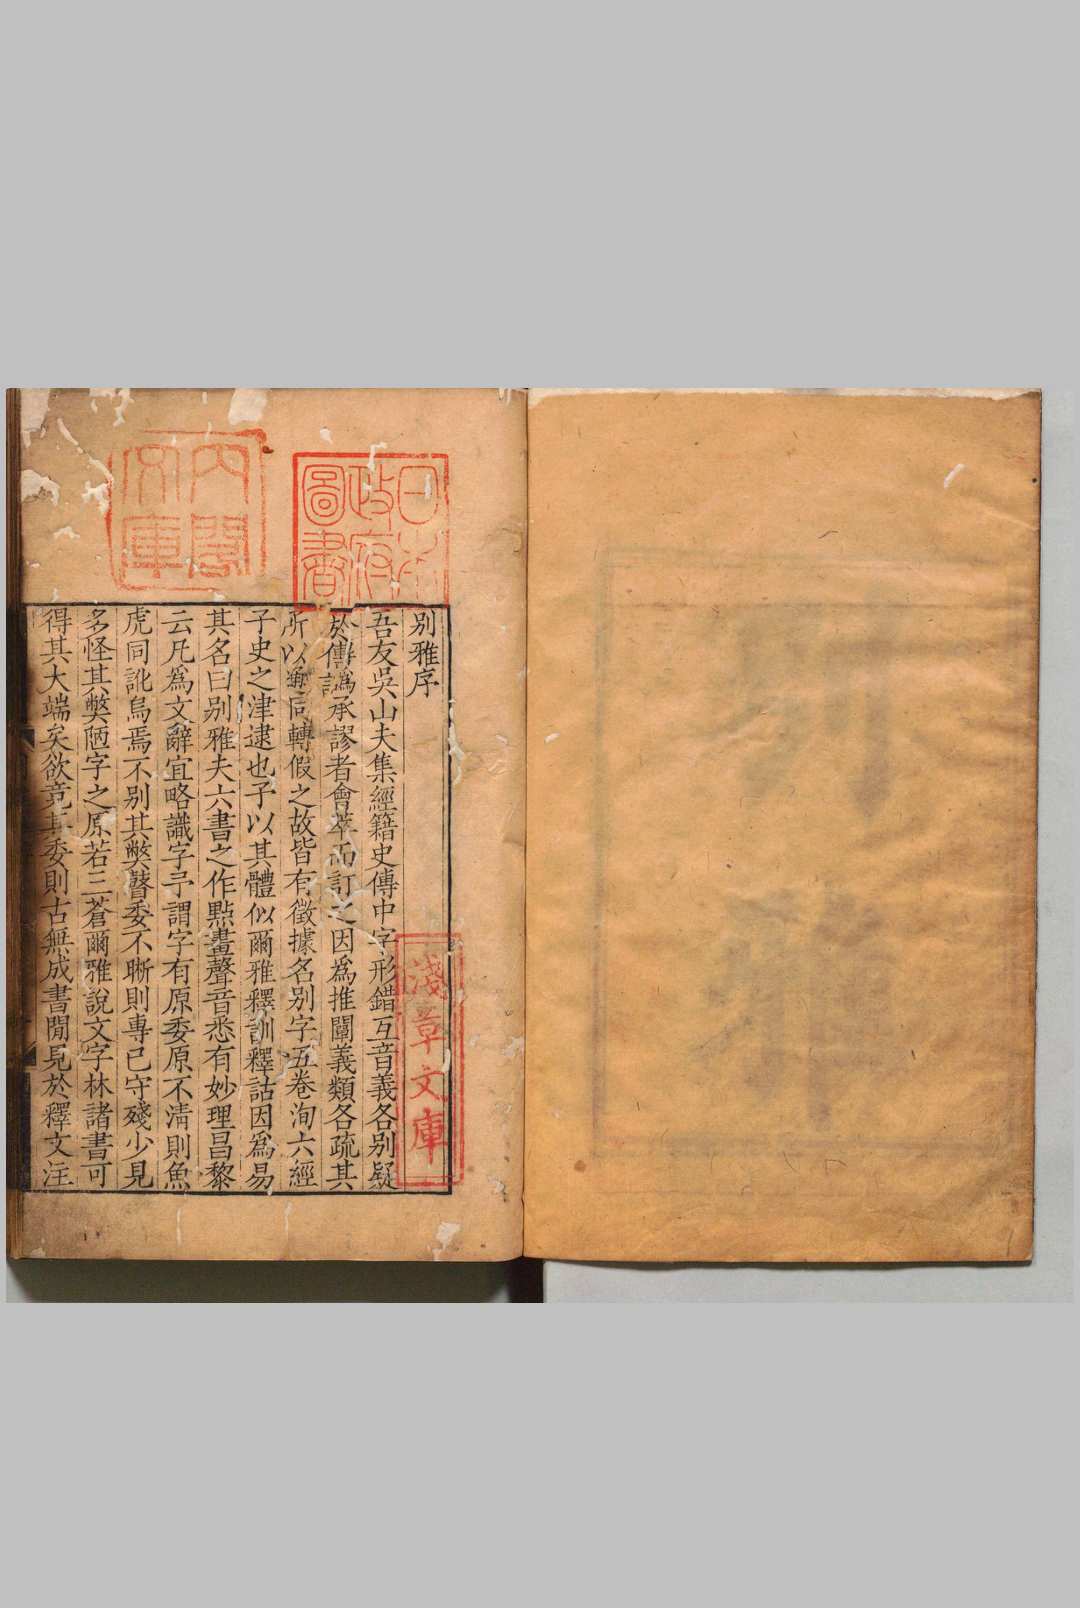 日本
政府
圖書
內閣
文庫
別雅序
吾友吳山夫集經籍史傳中字形錯互音義各別疑
於傳譌承謬者會萃而訂之因爲推闡義類各疏其
所以通同轉假之故皆有徵據名别字五卷洵六經
子史之津逮也予以其體似爾雅釋訓釋詁因爲易
其名曰别雅夫六書之作點畫聲音悉有妙理昌黎
云凡爲文辭宜略識字予謂字有原委原不淸則魚
虎同訛烏焉不别其弊瞽委不晰則專己守殘少見
多怪其弊陋字之原若三蒼爾雅說文字林諸書可
得其大端矣欲竟其委則古無成書閒見於釋文注
淺草文庫